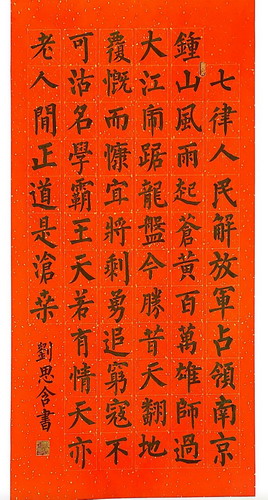 七律人民解放軍占領南京
鍾山風雨起蒼黃百萬雄師過
大江虎踞龍盤今勝昔天翻地
覆慨而慷宜將剩勇追窮寇不
可沽名學霸王天若有情天亦
老人間正道是滄桑
劉思含書